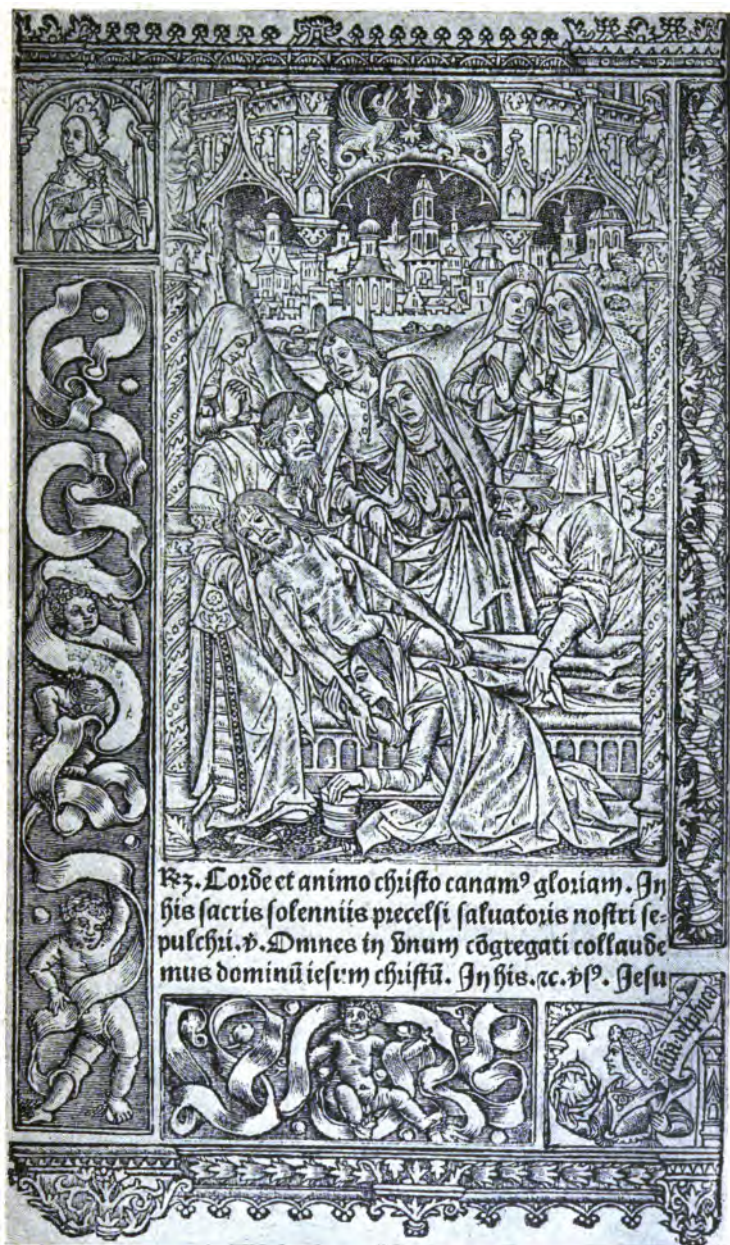 Rꝫ. Corde et animo christo canamꝰ gloriam. In
his sacris solenniis precelsi saluatoris nostri se⸗
pulchri. v̄. Omnes in vnum cōgregati collaude
mus dominū iesum christū. In his. ⁊c. v̄sꝰ. Jesu
sibila delphica